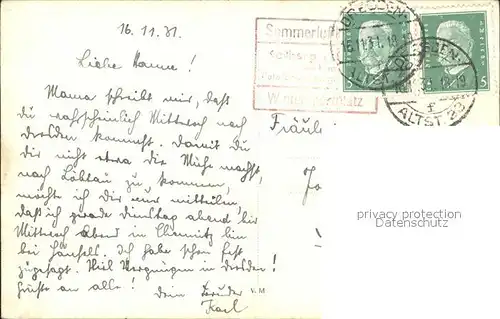 16.11.31.
Liebe Hanne!
Mama schreibt mir, daß
du wahrscheinlich Mittwoch nach
Dresden kommst. Damit du
dir nicht etwa die Mühe machst,
nach Löbtau zu kommen,
möchte ich dir nur mitteilen,
daß ich gerade Dienstag abend bis
Mittwoch abend in Chemnitz bin
bei Hänsels. Ich habe schon fest
zugesagt. Viel Vergnügen in Dresden!
Grüße an alle!
Dein Bruder
Karl
Fräule
V. M
Sommer
DRESDEN
ALTST.
5
5
DRESDEN
ALTST.
privacy protection
Datenschutz